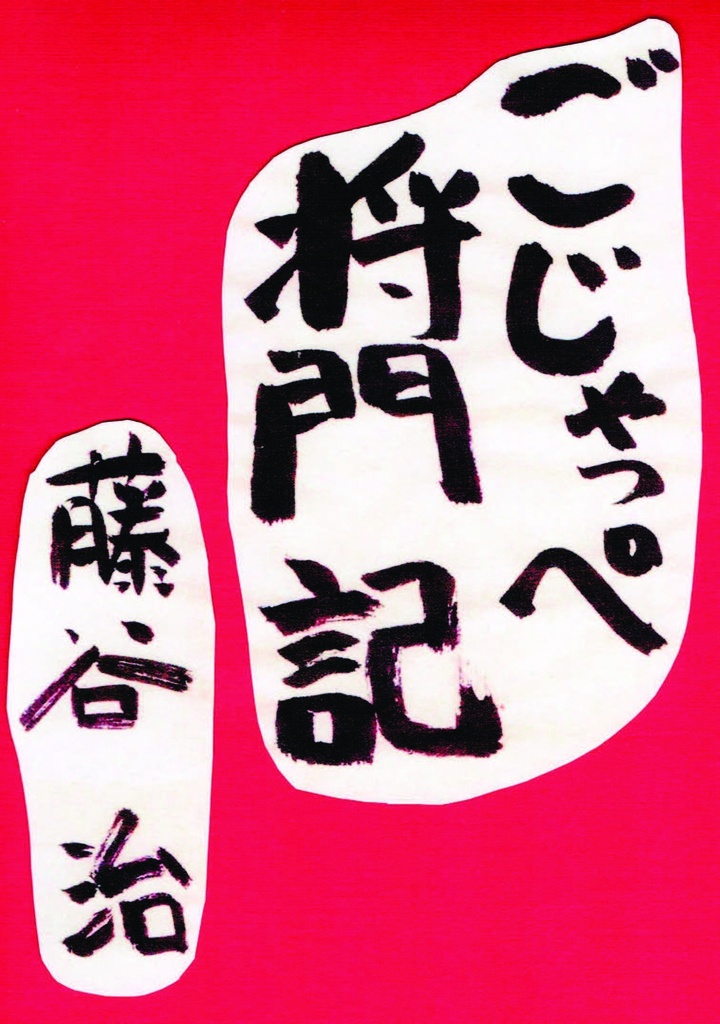 ごじゃっぺ
将門記
藤谷治